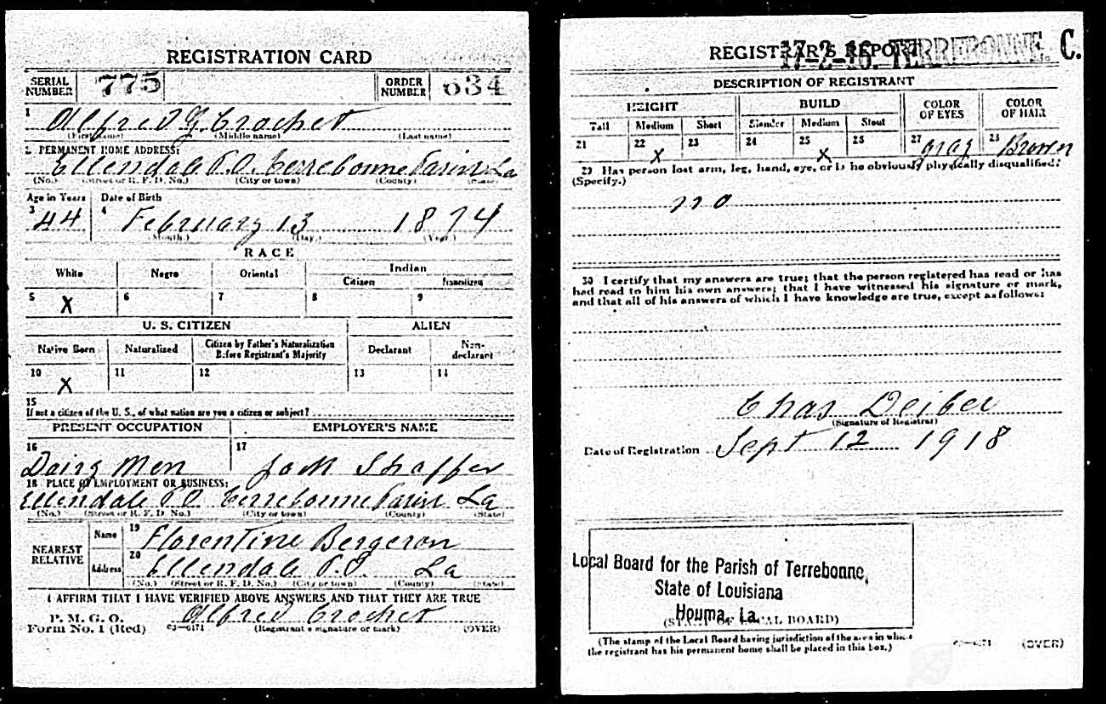 REGISTRATION CARD
SERIAL NUMBER 775 ORDER NUMBER 634
1 Alfred J. Crochet
(First name) (Middle name) (Last name)
2 PERMANENT HOME ADDRESS:
Ellendale P.O. Terrebonne Parish La
(No.) (Street or R. F. D. No.) (City or town) (County) (State)
Age in Years Date of Birth
3 44 4 February 13 1874
(Month.) (Day.) (Year.)
RACE
White Negro Oriental Indian
Citizen Noncitizen
5 X 6 7 8 9
U. S. CITIZEN ALIEN
Native Born Naturalized Citizen by Father's Naturalization Before Registrant's Majority Declarant Non-declarant
10 X 11 12 13 14
15
If not a citizen of the U. S., of what nation are you a citizen or subject?
PRESENT OCCUPATION EMPLOYER'S NAME
16 Dairy Men 17 Shaffer
18 PLACE OF EMPLOYMENT OR BUSINESS:
Ellendale P.O. Terrebonne Parish La
(No.) (Street or R. F. D. No.) (City or town) (County) (State)
NEAREST RELATIVE Name 19 Florentine Bergeron
Address 20 Ellendale P.O. La
(No.) (Street or R. F. D. No.) (City or town) (County) (State)
I AFFIRM THAT I HAVE VERIFIED ABOVE ANSWERS AND THAT THEY ARE TRUE
P. M. G. O.
Form No. 1 (Red) 03—6171 Alfred Crochet
(Registrant's signature or mark) (OVER)
REGISTRAR'S REPORT 17-2-16 TERREBONNE. C.
DESCRIPTION OF REGISTRANT
HEIGHT BUILD COLOR OF EYES COLOR OF HAIR
Tall Medium Short Slender Medium Stout
21 22 X 23 24 25 X 26 27 Gray 28 Brown
29 Has person lost arm, leg, hand, eye, or is he obviously physically disqualified?
(Specify.)
no
30 I certify that my answers are true; that the person registered has read or has
had read to him his own answers; that I have witnessed his signature or mark,
and that all of his answers of which I have knowledge are true, except as follows:
Chas Deiber
(Signature of Registrar)
Date of Registration Sept 12 1918
Local Board for the Parish of Terrebonne,
State of Louisiana
Houma, La.
(STAMP OF LOCAL BOARD)
(The stamp of the Local Board having jurisdiction of the area in which
the registrant has his permanent home shall be placed in this box.)
03—6171 (OVER)